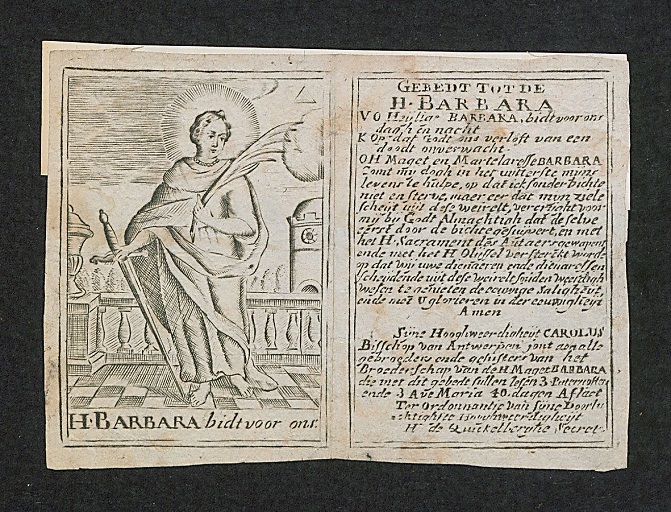 H. BARBARA bidt voor ons.
GEBEDT TOT DE
H. BARBARA
VO Heylige BARBARA, bidt voor ons
dagh en nacht
K Op dat Godt ons verlost van een
doodt onverwacht
OH Maget en Martelaresse BARBARA
Comt my dogh in het uytterste myns
levens te hulpe, op dat ick sonder bichte
niet en sterve, maer eer dat myn ziele
scheit uyt dese werelt, vercryght voor
my by Godt Almachtigh dat deselve
eerst door de bichte gesuyvert, en met
het H. Sacrament des
ende met het H Olyssel versterckt worde
op dat wy uwe dienaeren ende dienaressen
scheydende uyt dese werelt
wesen te genieten de eeuwige
ende met U glorieren in der eeuwigheyt
Amen
Syne Hooghweerdigheyt CAROLUS
Bisschop van Antwerpen jont aen alle
gebroeders ende gesusters van het
Broederschap van de H Maget BARBARA
die met dit gebedt sullen lesen 3 Paternosters
ende 3 Ave Maria 40. dagen Aflaet
Ter Ordonnantie van syne Doorlu
chtighste
H de Quickelberghe Secret.